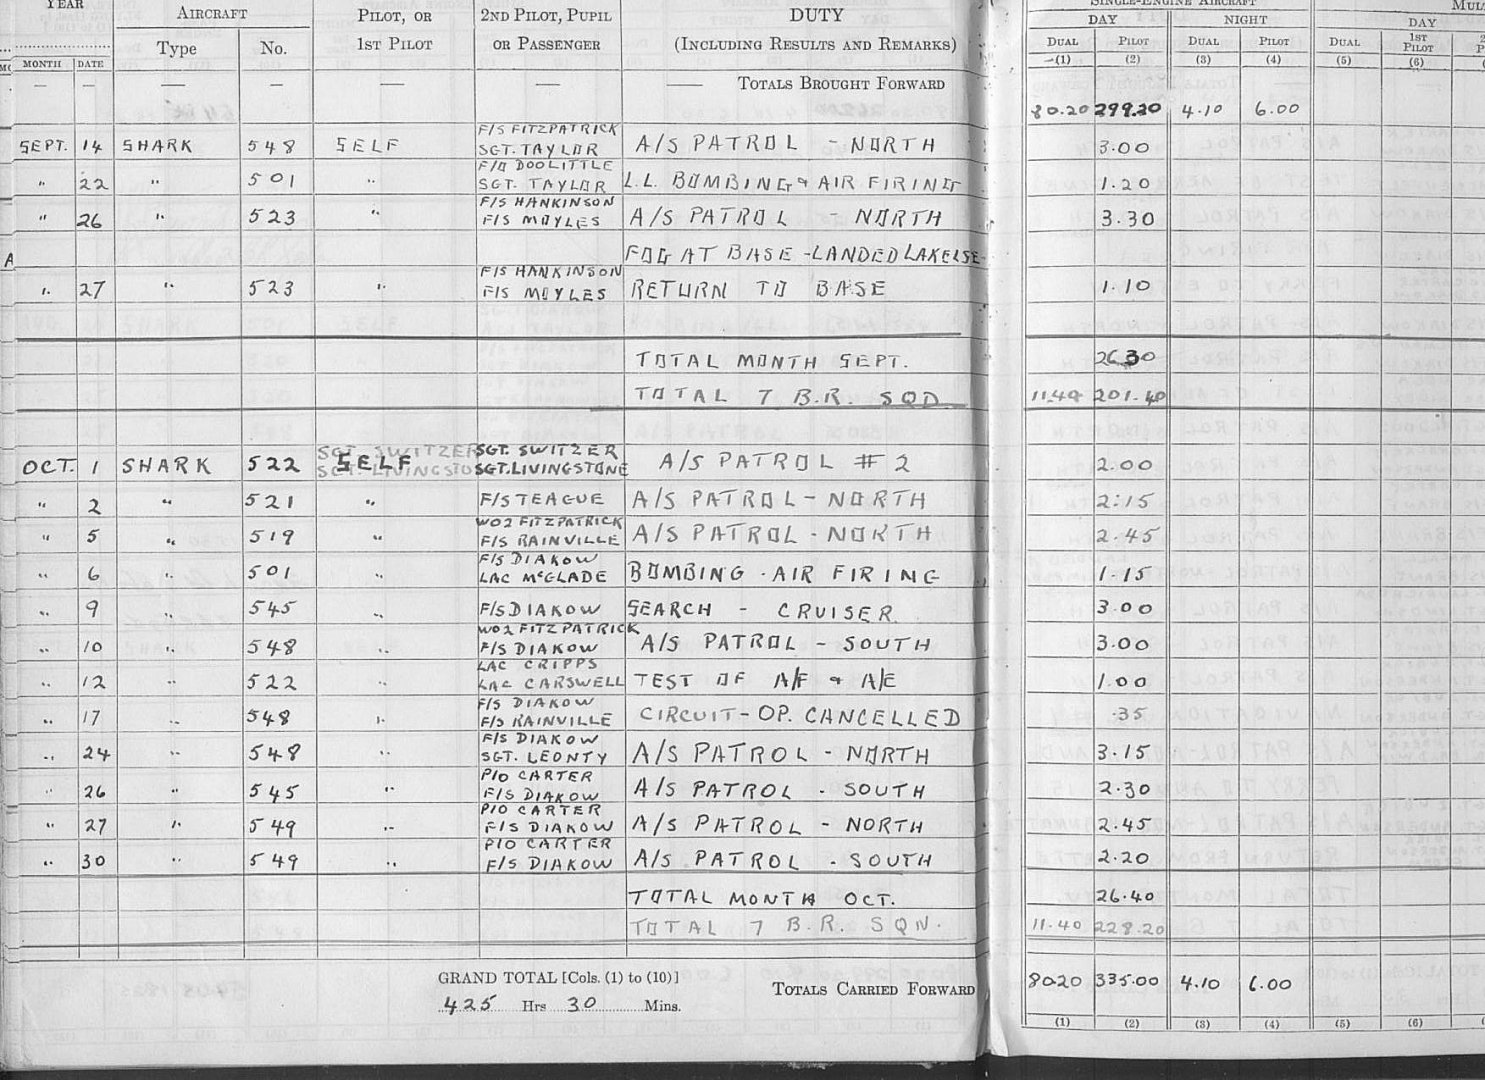 YEAR AIRCRAFT PILOT, OR 2ND PILOT, PUPIL DUTY SINGLE-ENGINE AIRCRAFT
DAY NIGHT DAY
Type No. 1ST PILOT OR PASSENGER (INCLUDING RESULTS AND REMARKS) DUAL PILOT DUAL PILOT DUAL 1ST PILOT
MONTH DATE (1) (2) (3) (4) (5) (6)
— — — — — — — TOTALS BROUGHT FORWARD
80.20 299.20 4.10 6.00
F/S FITZPATRICK
SEPT. 14 SHARK 548 SELF SGT. TAYLOR A/S PATROL - NORTH 3.00
F/O DOOLITTLE
" 22 " 501 " SGT. TAYLOR L.L. BOMBING & AIR FIRING 1.20
F/S HANKINSON
" 26 " 523 " F/S MOYLES A/S PATROL - NORTH 3.30
A FOG AT BASE - LANDED LAKELSE
F/S HANKINSON
" 27 " 523 " F/S MOYLES RETURN TO BASE 1.10
TOTAL MONTH SEPT. 26 30
TOTAL 7 B.R. SQD. 11.40 201.40
SGT. SWITZER SGT. SWITZER
OCT. 1 SHARK 522 SELF SGT. LIVINGSTONE A/S PATROL # 2 2.00
" 2 " 521 " F/S TEAGUE A/S PATROL - NORTH 2:15
WO2 FITZPATRICK
" 5 " 519 " F/S RAINVILLE A/S PATROL - NORTH 2.45
F/S DIAKOW
" 6 " 501 " LAC McGLADE BOMBING - AIR FIRING 1.15
" 9 " 545 " F/S DIAKOW SEARCH - CRUISER 3.00
WO2 FITZPATRICK
" 10 " 548 " F/S DIAKOW A/S PATROL - SOUTH 3.00
LAC CRIPPS
" 12 " 522 " LAC CARSWELL TEST OF A/F & A/E 1.00
F/S DIAKOW
" 17 " 548 " F/S RAINVILLE CIRCUIT - OP. CANCELLED .35
F/S DIAKOW
" 24 " 548 " SGT. LEONTY A/S PATROL - NORTH 3.15
P/O CARTER
" 26 " 545 " F/S DIAKOW A/S PATROL - SOUTH 2.30
P/O CARTER
" 27 " 549 " F/S DIAKOW A/S PATROL - NORTH 2.45
P/O CARTER
" 30 " 549 " F/S DIAKOW A/S PATROL - SOUTH 2.20
TOTAL MONTH OCT. 26.40
TOTAL 7 B.R. SQN. 11.40 228.20
GRAND TOTAL [Cols. (1) to (10)] TOTALS CARRIED FORWARD 80.20 335.00 4.10 6.00
425 Hrs 30 Mins.
(1) (2) (3) (4) (5) (6)